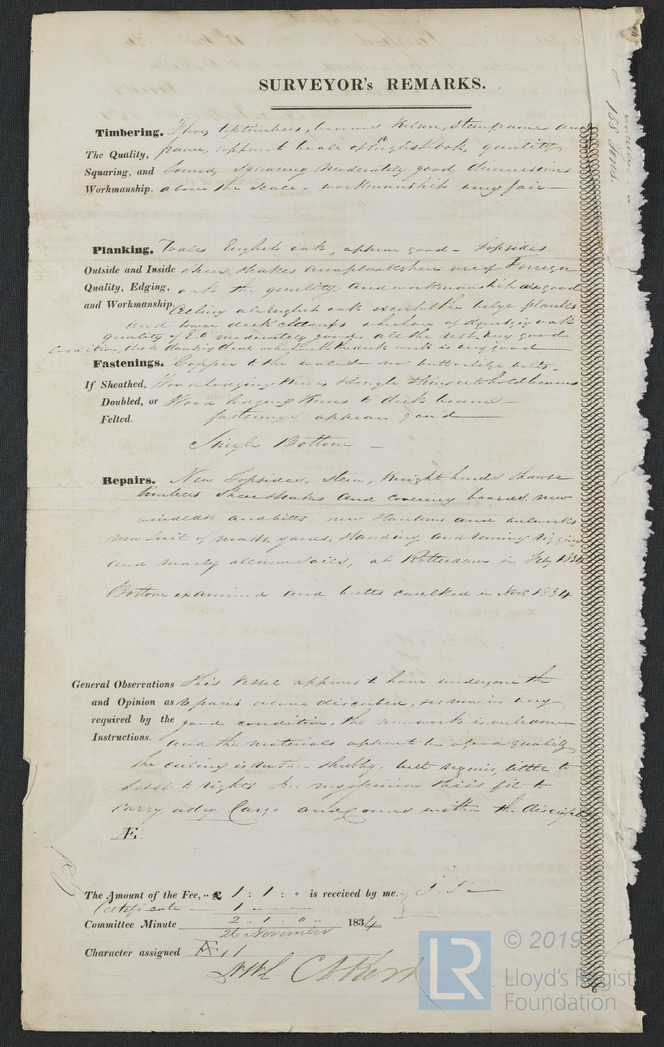 SURVEYOR's REMARKS.
Timbering. Floors, toptimbers, Kelson, Stemframe and
The Quality, frame, appear to be all of English Oak, quality
Squaring, and Sound, Squaring moderately good, dimensions
Workmanship. above the Scale, workmanship very fair
Planking. Wales English oak, appear good - Topsides
Outside and Inside Sheer Strakes and plansheer are of Foreign
Quality, Edging, oak the quality and workmanship are good
and Workmanship. Ceiling all English oak except the bilge planks
and lower deck clamps which are of oak
quality of moderately good, all the rest very good
condition, deck deal work is very good
Fastenings. Copper to the wales butt bolts
If Sheathed, Wood lodging Knees Single to hold beams
Doubled, or Wood hanging Knees to deck beams
Felted. fastenings appear good
Single Bottom
Repairs. New Topsides, Stem, Knightheads Hawse
timbers Sheerstrakes and covering boards, new
windlass and bitts, new Stantions and bulwarks
new suit of masts, yards, Standing and running rigging
and nearly all new sails, at Rotterdam in Feby 1834
Bottom examined and butts caulked in Novr 1834
General Observations This Vessel appears to have undergone the
and Opinion as repairs above described, is now in very
required by the good condition, the new work is well done
Instructions. and the materials appear to be of good quality
the ceiling is rather shabby, but requires little to
set to rights In my opinion this is fit to
carry a dry Cargo and comes within the
Æ
The Amount of the Fee, .. £ 1 : 1 : 0 is received by me,
Certificate - 1
2 . 1 . 0
Committee Minute 26 November 1834
Character assigned Æ 1
155 Tons
© 2019
LR
Lloyd's Register
Foundation